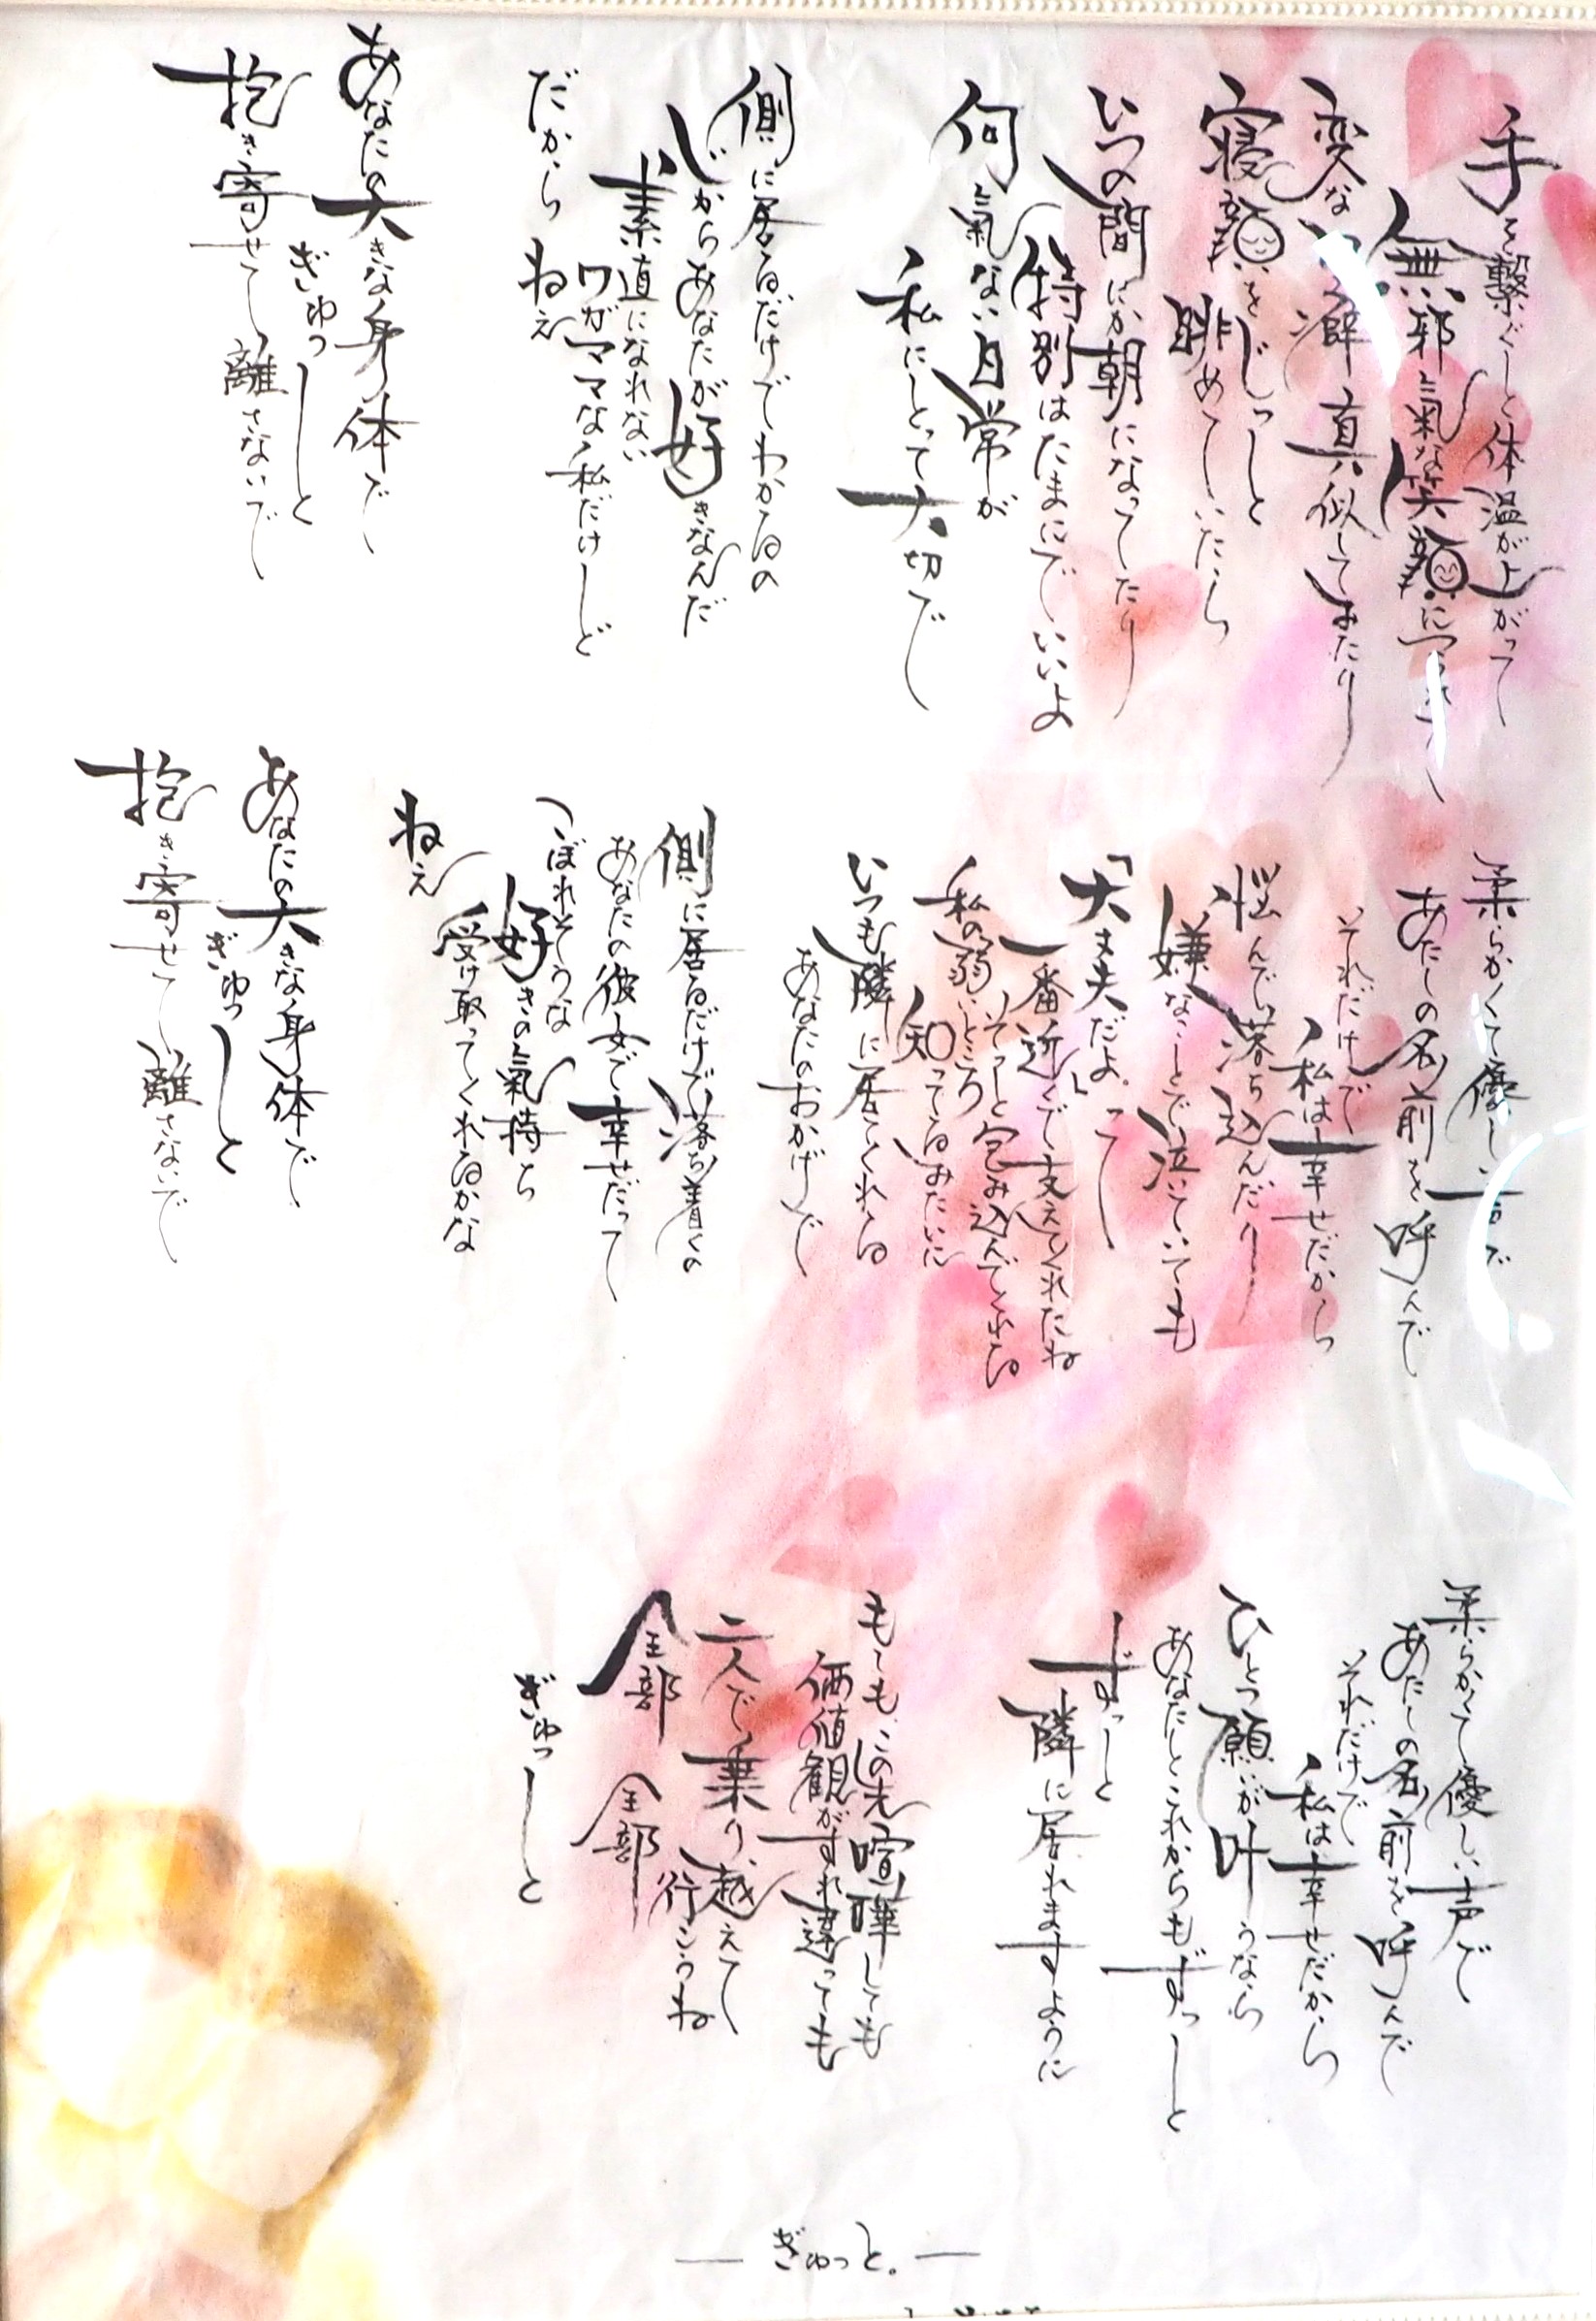 手を繋ぐと体温が上がって
無邪氣な笑顔につられて
変なクセ癖真似してみたり
寝顔をじっと
眺めていたら
いつの間にか朝になってたり
特別はたまにでいいよ
何氣ない日常が
私にとって大切で
側に居るだけでわかるの
心からあなたが好きなんだ
素直になれない
ワガママな私だけど
だから ねえ
あなたの大きな身体で
ぎゅっと
抱き寄せて離さないで
柔らかくて優しい声で
あたしの名前を呼んで
それだけで
私は幸せだから
悩んで落ち込んだり
嫌なことで泣いていても
「大丈夫だよ。」って
一番近くで支えてくれたね
そっと包み込んでくれる
私の弱いところ
知ってるみたいに
いつも隣に居てくれる
あなたのおかげで
側に居るだけで落ち着くの
あなたの彼女で幸せだって
こぼれそうな
好きの氣持ち
受け取ってくれるかな
ねえ
あなたの大きな身体で
ぎゅっと
抱き寄せて離さないで
柔らかくて優しい声で
あたしの名前を呼んで
それだけで
私は幸せだから
ひとつ願いが叶うなら
あなたとこれからもずっと
ずっと
隣に居れますように
もしも この先喧嘩しても
価値観がすれ違っても
二人で乗り越えて
行こうね
全部 全部
ぎゅっと
― ぎゅっと。―